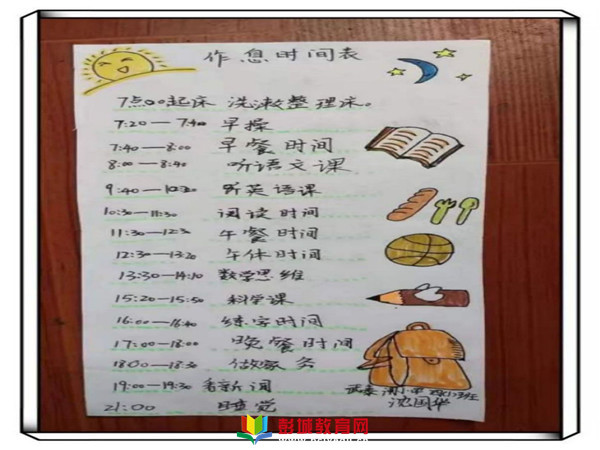 作息时间表
7点00起床 洗漱整理床。
7:20—7:40 早操
7:40—8:00 早餐时间
8:00—8:40 听语文课
9:40—10:20 听英语课
10:30—11:30 阅读时间
11:30—12:30 午餐时间
12:30—13:20 午休时间
13:30—14:10 数学思维
15:20—15:50 科学课
16:00—16:40 练字时间
17:00—18:00 晚餐时间
18:00—18:30 做家务
19:00—19:30 看新闻
21:00 睡觉
沈国华
彭城教育网